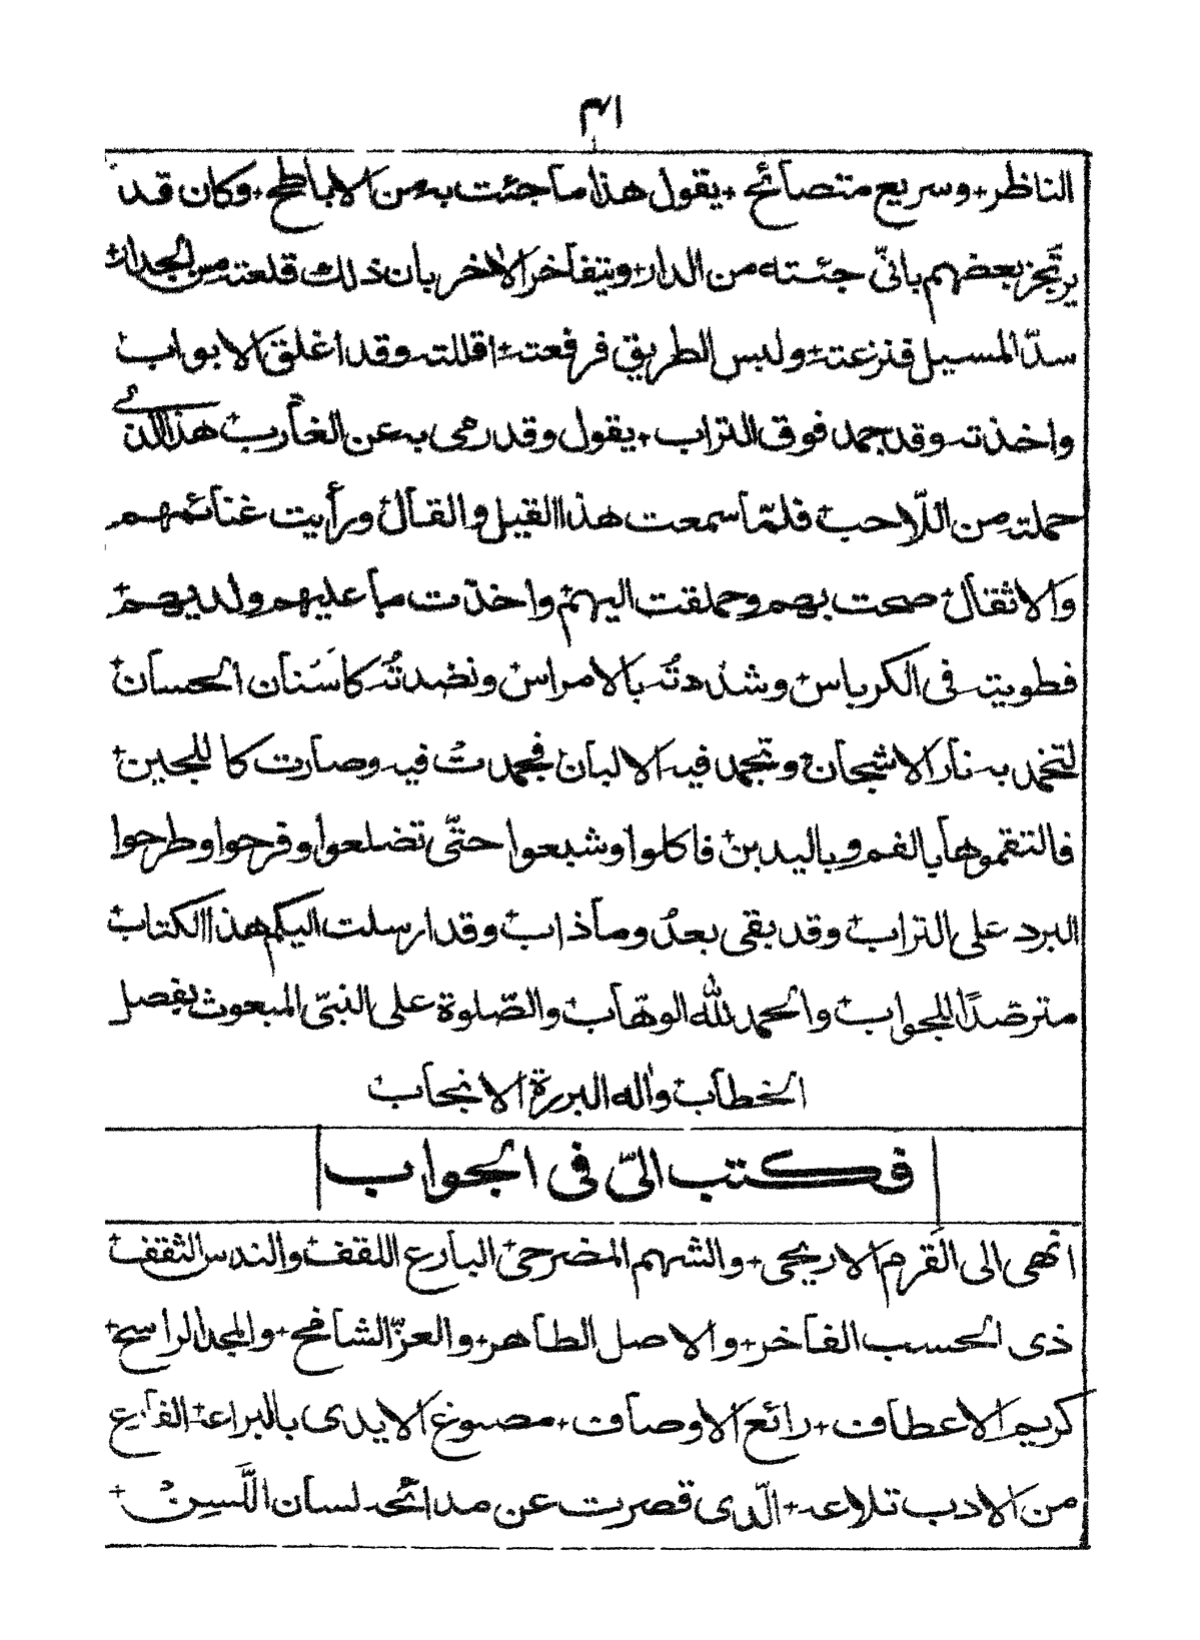 الناظر + وسريع متصائح + يقول هذا ما جئت به من الاباطح + وكان قد
يرتجز بعضهم بانّي جئته من الدار + ويتفاخر الاخر بان ذلك قلعته من الجدار +
سدّ المسيل فنزعته + ولبس الطريق فرفعته + اقللته وقد اغلق الابواب
واخذته وقد جمد فوق التراب + يقول وقد رمى به عن الغارب + هذا الذى
حملته من اللّاحب + فلمّا سمعت هذا القيل والقال ورأيت غنائمهم
والاثقال + صحت بهم وحملقت اليهم + واخذت ما عليهم ولديهم +
فطويته فى الكرباس + وشددتُه بالامراس + ونضدتُه كاسَنان الحسان +
لتخمد به نار الاشجان + وتجمد فيه الالبان + فجمدتُ فيه وصارت كاللجين +
فالتقموها بالفم وباليدين + فاكلوا وشبعوا حتّى تضلعوا وفرحوا وطرحوا
البرد على التراب + وقد بقى بعدُ وما ذاب + وقد ارسلت اليكم هذا الكتاب +
مترصّدًا للجواب + والحمد لله الوهّاب + والصّلوة على النبىّ المبعوث بفصل
الخطاب + واله البررة الانجاب +
فكتب الىّ فى الجواب
انهى الى القَرم الاريحى + والشهم المضرحى + البارع اللقف + والندس الثقف +
ذى الحسب الفاخر + والاصل الطاهر + والعزّ الشامخ + والمجد الراسخ +
كريم الاعطاف + رائع الاوصاف + مصبوغ الايدى بالبراعة + الفارع
من الادب تلاعه + الّذى قصرت عن مدائحه لسان اللَّسِن +